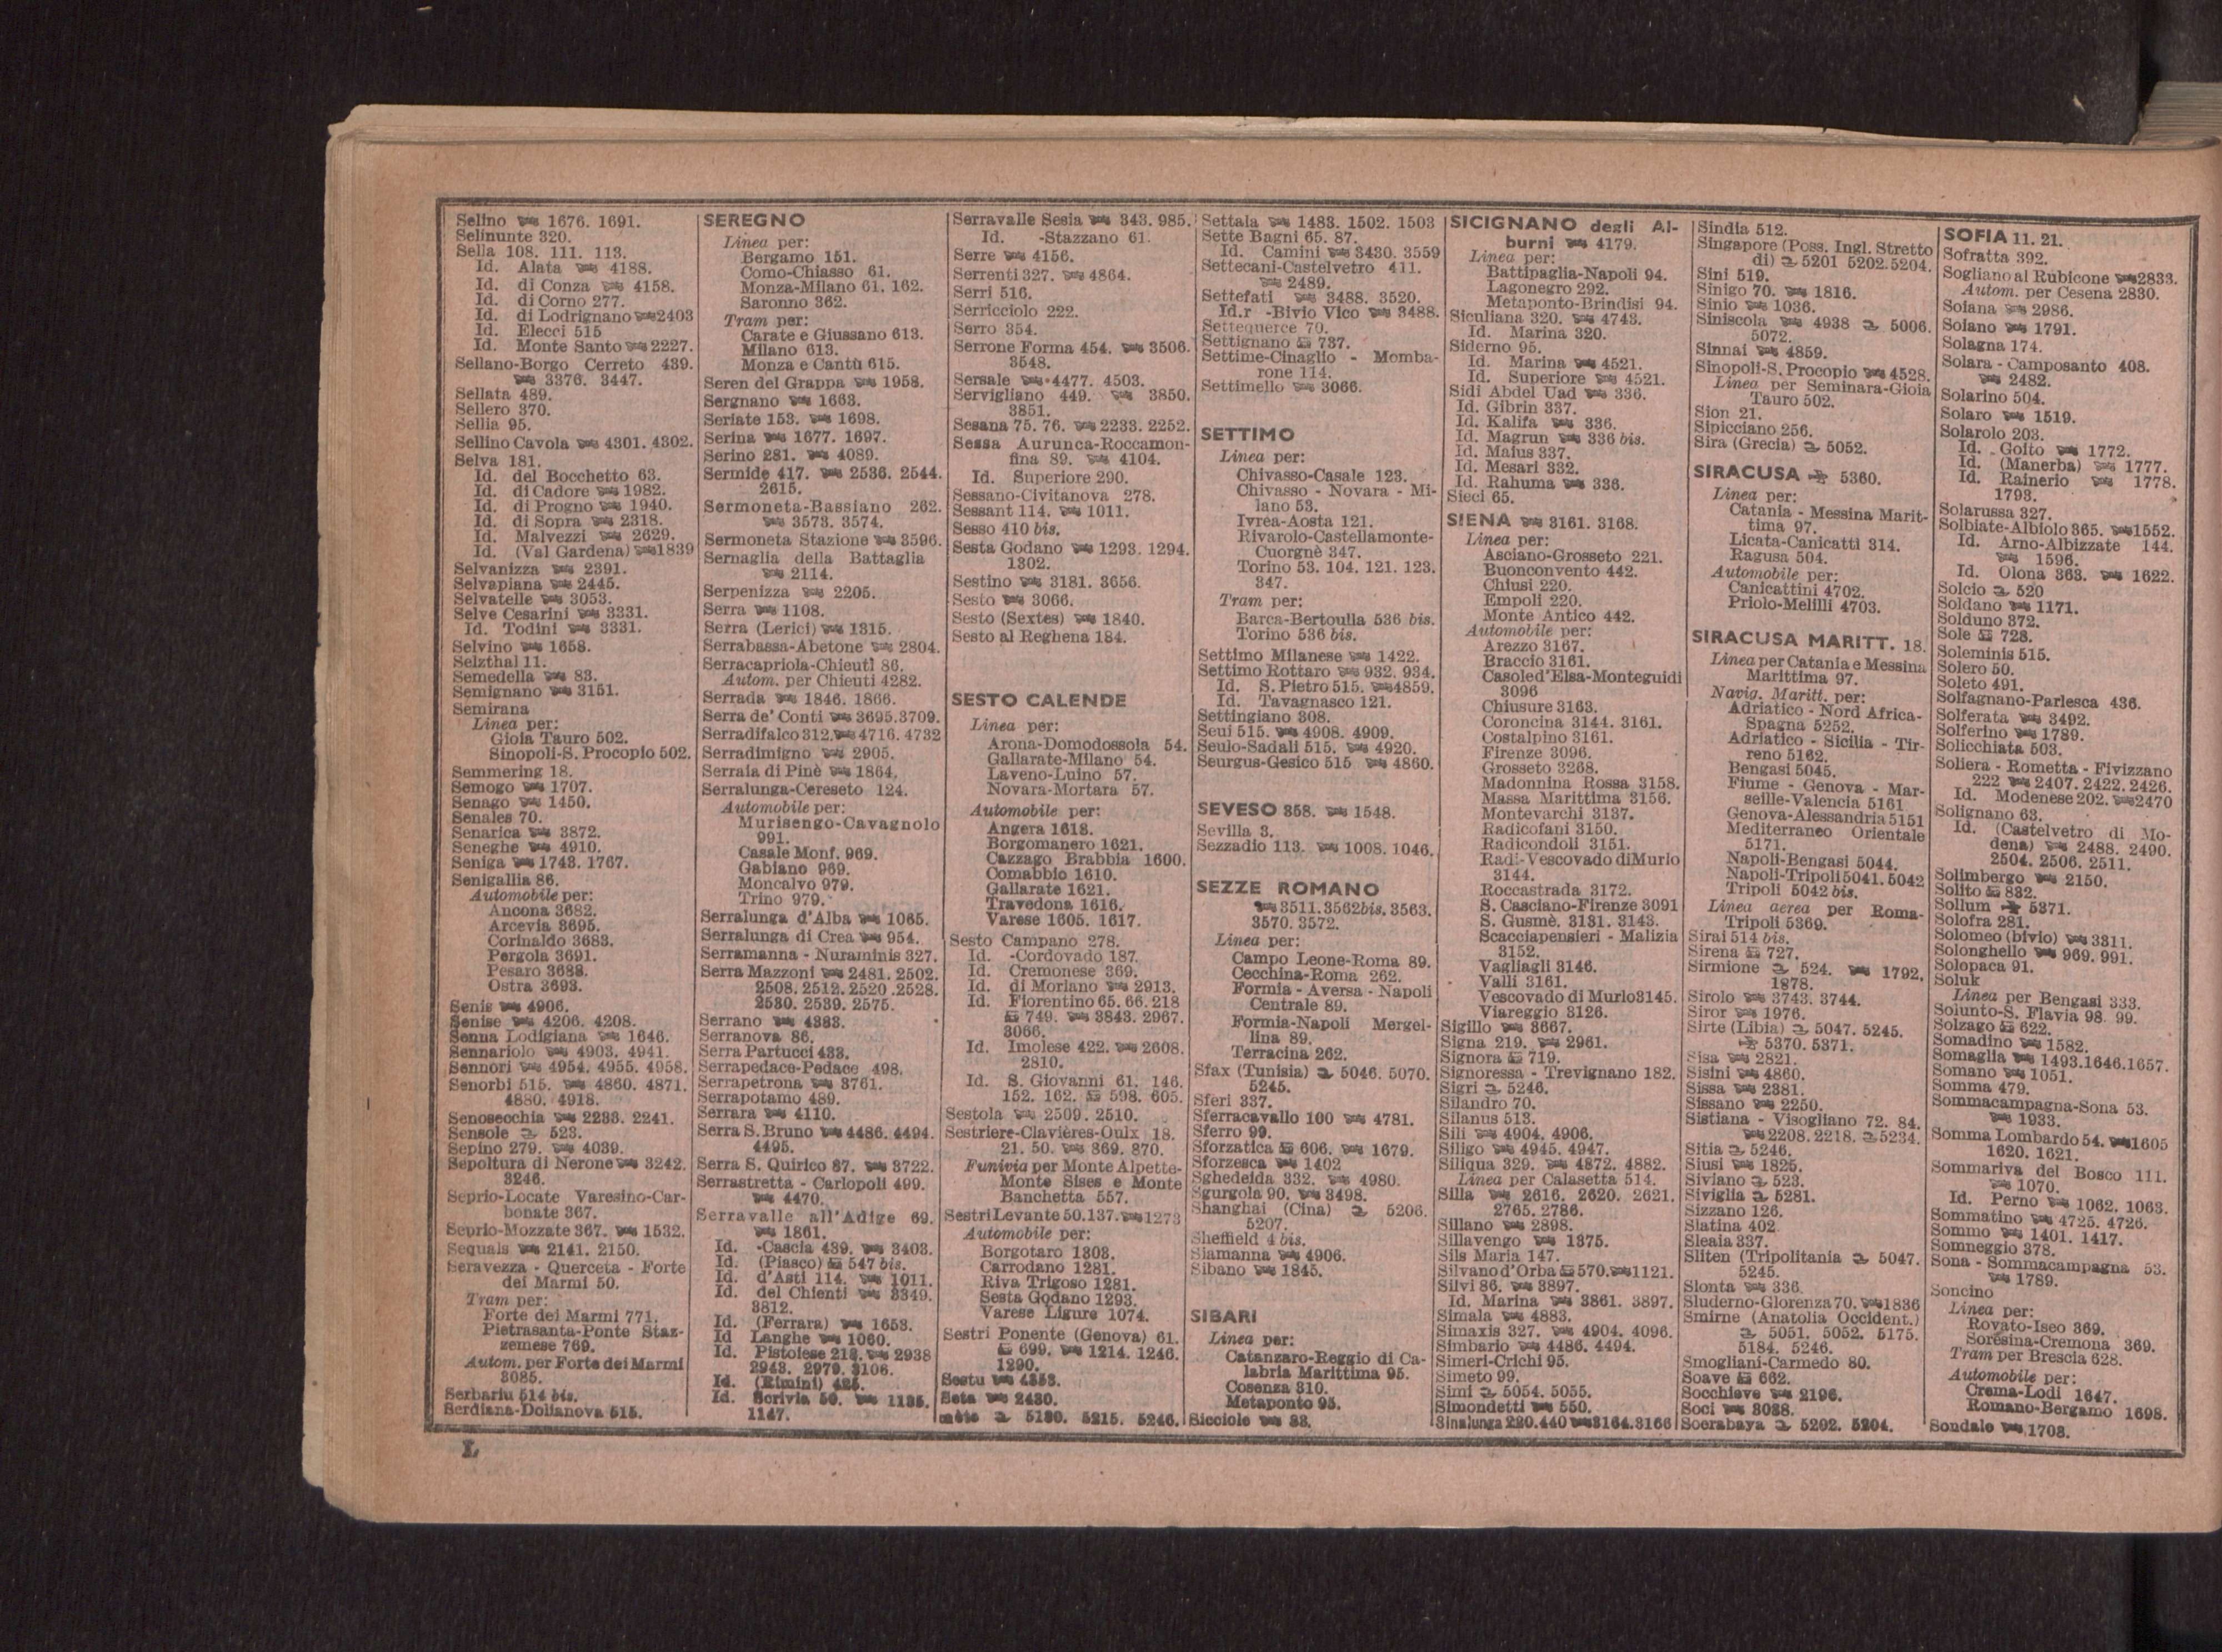 Selino 1676. 1691.
Selinunte 320.
Sella 108. 111. 113.
Id. Alata 4188.
Id. di Conza 4158.
Id. di Corno 277.
Id. di Lodrignano 2403
Id. Elecci 515
Id. Monte Santo 2227.
Sellano-Borgo Cerreto 439.
3376. 3447.
Sellata 489.
Sellero 370.
Sellia 95.
Sellino Cavola 4301. 4302.
Selva 181.
Id. del Bocchetto 63.
Id. di Cadore 1982.
Id. di Progno 1940.
Id. di Sopra 2318.
Id. Malvezzi 2629.
Id. (Val Gardena) 1839
Selvanizza 2391.
Selvapiana 2445.
Selvatelle 3053.
Selve Cesarini 3331.
Id. Todini 3331.
Selvino 1658.
Selzthal 11.
Semedella 83.
Semignano 3151.
Semirana
Linea per:
Gioia Tauro 502.
Sinopoli-S. Procopio 502.
Semmering 18.
Semogo 1707.
Senago 1450.
Senales 70.
Senarica 3872.
Seneghe 4910.
Seniga 1743. 1767.
Senigallia 86.
Automobile per:
Ancona 3682.
Arcevia 3695.
Corinaldo 3683.
Pergola 3691.
Pesaro 3688.
Ostra 3693.
Senis 4906.
Senise 4206. 4208.
Senna Lodigiana 1646.
Sennariolo 4903. 4941.
Sennori 4954. 4955. 4958.
Senorbi 515. 4860. 4871.
4880. 4918.
Senosecchia 2233. 2241.
Sensole 523.
Sepino 279. 4039.
Sepoltura di Nerone 3242.
3246.
Seprio-Locate Varesino-Car-
bonate 367.
Seprio-Mozzate 367. 1532.
Sequals 2141. 2150.
Seravezza - Querceta - Forte
dei Marmi 50.
Tram per:
Forte dei Marmi 771.
Pietrasanta-Ponte Staz-
zemese 769.
Autom. per Forte dei Marmi
3085.
Serbariu 514 bis.
Serdiana-Dolianova 515.
SEREGNO
Linea per:
Bergamo 151.
Como-Chiasso 61.
Monza-Milano 61. 162.
Saronno 362.
Tram per:
Carate e Giussano 613.
Milano 613.
Monza e Cantù 615.
Seren del Grappa 1958.
Sergnano 1663.
Seriate 153. 1698.
Serina 1677. 1697.
Serino 281. 4089.
Sermide 417. 2536. 2544.
2615.
Sermoneta-Bassiano 262.
3573. 3574.
Sermoneta Stazione 3596.
Sernaglia della Battaglia
2114.
Serpenizza 2205.
Serra 1108.
Serra (Lerici) 1315.
Serrabassa-Abetone 2804.
Serracapriola-Chieuti 86.
Autom. per Chieuti 4282.
Serrada 1846. 1866.
Serra de' Conti 3695.3709.
Serradifalco 312. 4716. 4732
Serradimigno 2905.
Serraia di Pinè 1864.
Serralunga-Cereseto 124.
Automobile per:
Murisengo-Cavagnolo
991.
Casale Monf. 969.
Gabiano 969.
Moncalvo 979.
Trino 979.
Serralunga d'Alba 1065.
Serralunga di Crea 954.
Serramanna - Nuraminis 327.
Serra Mazzoni 2481. 2502.
2508. 2512. 2520. 2528.
2530. 2539. 2575.
Serrano 4383.
Serranova 86.
Serra Partucci 433.
Serrapedace-Pedace 498.
Serrapetrona 3761.
Serrapotamo 489.
Serrara 4110.
Serra S. Bruno 4486. 4494.
4495.
Serra S. Quirico 87. 3722.
Serrastretta - Carlopoli 499.
4470.
Serravalle all'Adige 69.
1861.
Id. -Cascia 439. 3403.
Id. (Piasco) 547 bis.
Id. d'Asti 114. 1011.
Id. del Chienti 3349.
3812.
Id. (Ferrara) 1653.
Id Langhe 1060.
Id. Pistoiese 218. 2938
2943. 2979. 3106.
Id. (Rimini) 425.
Id. Scrivia 50. 1135.
1147.
Serravalle Sesia 343. 985.
Id. -Stazzano 61.
Serre 4156.
Serrenti 327. 4864.
Serri 516.
Serricciolo 222.
Serro 354.
Serrone Forma 454. 3506.
3548.
Sersale 4477. 4503.
Servigliano 449. 3850.
3851.
Sesana 75. 76. 2233. 2252.
Sessa Aurunca-Roccamon-
fina 89. 4104.
Id. Superiore 290.
Sessano-Civitanova 278.
Sessant 114. 1011.
Sesso 410 bis.
Sesta Godano 1293. 1294.
1302.
Sestino 3181. 3656.
Sesto 3066.
Sesto (Sextes) 1840.
Sesto al Reghena 184.
SESTO CALENDE
Linea per:
Arona-Domodossola 54.
Gallarate-Milano 54.
Laveno-Luino 57.
Novara-Mortara 57.
Automobile per:
Angera 1618.
Borgomanero 1621.
Cazzago Brabbia 1600.
Comabbio 1610.
Gallarate 1621.
Travedona 1616.
Varese 1605. 1617.
Sesto Campano 278.
Id. -Cordovado 187.
Id. Cremonese 369.
Id. di Moriano 2913.
Id. Fiorentino 65. 66. 218
749. 3843. 2967.
3066.
Id. Imolese 422. 2608.
2810.
Id. S. Giovanni 61. 146.
152. 162. 598. 605.
Sestola 2509. 2510.
Sestriere-Clavières-Oulx 18.
21. 50. 869. 870.
Funivia per Monte Alpette-
Monte Sises e Monte
Banchetta 557.
Sestri Levante 50.137. 1273
Automobile per:
Borgotaro 1303.
Carrodano 1281.
Riva Trigoso 1281.
Sesta Godano 1293.
Varese Ligure 1074.
Sestri Ponente (Genova) 61.
699. 1214. 1246.
1290.
Sestu 4353.
Seta 2430.
5130. 5215. 5246.
Settala 1483. 1502. 1503
Sette Bagni 65. 87.
Id. Camini 3430. 3559
Settecani-Castelvetro 411.
2489.
Settefati 3488. 3520.
Id.r -Bivio Vico 3488.
Settequerce 70.
Settignano 737.
Settime-Cinaglio - Momba-
rone 114.
Settimello 3066.
SETTIMO
Linea per:
Chivasso-Casale 123.
Chivasso - Novara - Mi-
lano 53.
Ivrea-Aosta 121.
Rivarolo-Castellamonte-
Cuorgnè 347.
Torino 53. 104. 121. 123.
347.
Tram per:
Barca-Bertoulla 536 bis.
Torino 536 bis.
Settimo Milanese 1422.
Settimo Rottaro 932. 934.
Id. S. Pietro 515. 4859.
Id. Tavagnasco 121.
Settingiano 308.
Seui 515. 4908. 4909.
Seulo-Sadali 515. 4920.
Seurgus-Gesico 515 4860.
SEVESO 358. 1548.
Sevilla 3.
Sezzadio 113. 1008. 1046.
SEZZE ROMANO
3511. 3562bis. 3563.
3570. 3572.
Linea per:
Campo Leone-Roma 89.
Cecchina-Roma 262.
Formia - Aversa - Napoli
Centrale 89.
Formia-Napoli Mergel-
lina 89.
Terracina 262.
Sfax (Tunisia) 5046. 5070.
5245.
Sferi 337.
Sferracavallo 100 4781.
Sferro 99.
Sforzatica 606. 1679.
Sforzesca 1402
Sghedeida 332. 4980.
Sgurgola 90. 3498.
Shanghai (Cina) 5206.
5207.
Sheffield 4 bis.
Siamanna 4906.
Sibano 1845.
SIBARI
Linea per:
Catanzaro-Reggio di Ca-
labria Marittima 95.
Cosenza 310.
Metaponto 95.
Sicciole 83.
SICIGNANO degli Al-
burni 4179.
Linea per:
Battipaglia-Napoli 94.
Lagonegro 292.
Metaponto-Brindisi 94.
Siculiana 320. 4743.
Id. Marina 320.
Siderno 95.
Id. Marina 4521.
Id. Superiore 4521.
Sidi Abdel Uad 336.
Id. Gibrin 337.
Id. Kalifa 336.
Id. Magrun 336 bis.
Id. Maius 337.
Id. Mesari 332.
Id. Rahuma 336.
Sieci 65.
SIENA 3161. 3168.
Linea per:
Asciano-Grosseto 221.
Buonconvento 442.
Chiusi 220.
Empoli 220.
Monte Antico 442.
Automobile per:
Arezzo 3167.
Braccio 3161.
Casoled'Elsa-Monteguidi
3096
Chiusure 3163.
Coroncina 3144. 3161.
Costalpino 3161.
Firenze 3096.
Grosseto 3268.
Madonnina Rossa 3158.
Massa Marittima 3156.
Montevarchi 3137.
Radicofani 3150.
Radicondoli 3151.
Radi-Vescovado diMurlo
3144.
Roccastrada 3172.
S. Casciano-Firenze 3091
S. Gusmè. 3131. 3143.
Scacciapensieri - Malizia
3152.
Vagliagli 3146.
Valli 3161.
Vescovado di Murlo3145.
Viareggio 3126.
Sigillo 3667.
Signa 219. 2961.
Signora 719.
Signoressa - Trevignano 182.
Sigri 5246.
Silandro 70.
Silanus 513.
Sili 4904. 4906.
Siligo 4945. 4947.
Siliqua 329. 4872. 4882.
Linea per Calasetta 514.
Silla 2616. 2620. 2621.
2765. 2786.
Sillano 2898.
Sillavengo 1375.
Sils Maria 147.
Silvano d'Orba 570. 1121.
Silvi 86. 3897.
Id. Marina 3861. 3897.
Simala 4883.
Simaxis 327. 4904. 4096.
Simbario 4486. 4494.
Simeri-Crichi 95.
Simeto 99.
Simi 5054. 5055.
Simondetti 550.
Sinalunga 220.440 3164.3166
Sindia 512.
Singapore (Poss. Ingl. Stretto
di) 5201 5202.5204.
Sini 519.
Sinigo 70. 1816.
Sinio 1036.
Siniscola 4938 5006.
5072.
Sinnai 4859.
Sinopoli-S. Procopio 4528.
Linea per Seminara-Gioia
Tauro 502.
Sion 21.
Sipicciano 256.
Sira (Grecia) 5052.
SIRACUSA 5360.
Linea per:
Catania - Messina Marit-
tima 97.
Licata-Canicattì 314.
Ragusa 504.
Automobile per:
Canicattini 4702.
Priolo-Melilli 4703.
SIRACUSA MARITT. 18.
Linea per Catania e Messina
Marittima 97.
Navig. Maritt. per:
Adriatico - Nord Africa-
Spagna 5252.
Adriatico - Sicilia - Tir-
reno 5162.
Bengasi 5045.
Fiume - Genova - Mar-
seille-Valencia 5161
Genova-Alessandria 5151
Mediterraneo Orientale
5171.
Napoli-Bengasi 5044.
Napoli-Tripoli 5041. 5042
Tripoli 5042 bis.
Linea aerea per Roma-
Tripoli 5369.
Sirai 514 bis.
Sirena 727.
Sirmione 524. 1792.
1878.
Sirolo 3743. 3744.
Siror 1976.
Sirte (Libia) 5047. 5245.
5370. 5371.
Sisa 2821.
Sisini 4860.
Sissa 2381.
Sissano 2250.
Sistiana - Visogliano 72. 84.
2208. 2218. 5234.
Sitia 5246.
Siusi 1825.
Siviano 523.
Siviglia 5281.
Sizzano 126.
Slatina 402
Sleaia 337.
Sliten (Tripolitania 5047.
5245.
Slonta 336.
Sluderno-Glorenza 70. 1836
Smirne (Anatolia Occident.)
5051. 5052. 5175.
5184. 5246.
Smogliani-Carmedo 80.
Soave 662.
Socchieve 2196.
Soci 3038.
Soerabaya 5202. 5204.
SOFIA 11. 21.
Sofratta 392.
Sogliano al Rubicone 2833.
Autom. per Cesena 2830.
Soiana 2986.
Soiano 1791.
Solagna 174.
Solara - Camposanto 408.
2482.
Solarino 504.
Solaro 1519.
Solarolo 203.
Id. Goito 1772.
Id. (Manerba) 1777.
Id. Rainerio 1778.
1793.
Solarussa 327.
Solbiate-Albiolo 365. 1552.
Id. Arno-Albizzate 144.
1596.
Id. Olona 363. 1622.
Solcio 520
Soldano 1171.
Solduno 372.
Sole 728.
Soleminis 515.
Solero 50.
Soleto 491.
Solfagnano-Parlesca 436.
Solferata 3492.
Solferino 1789.
Solicchiata 503.
Soliera - Rometta - Fivizzano
222 2407. 2422. 2426.
Id. Modenese 202. 2470
Solignano 63.
Id. (Castelvetro di Mo-
dena) 2488. 2490.
2504. 2506. 2511.
Solimbergo 2150.
Solito 832.
Sollum 5371.
Solofra 281.
Solomeo (bivio) 3311.
Solonghello 969. 991.
Solopaca 91.
Soluk
Linea per Bengasi 333.
Solunto-S. Flavia 98. 99.
Solzago 622.
Somadino 1582.
Somaglia 1493.1646.1657.
Somano 1051.
Somma 479.
Sommacampagna-Sona 53.
1933.
Somma Lombardo 54. 1605
1620. 1621.
Sommariva del Bosco 111.
1070.
Id. Perno 1062. 1063.
Sommatino 4725. 4726.
Sommo 1401. 1417.
Somneggio 378.
Sona - Sommacampagna 53.
1789.
Soncino
Linea per:
Rovato-Iseo 369.
Soresina-Cremona 369.
Tram per Brescia 628.
Automobile per:
Crema-Lodi 1647.
Romano-Bergamo 1698.
Sondalo 1708.
L